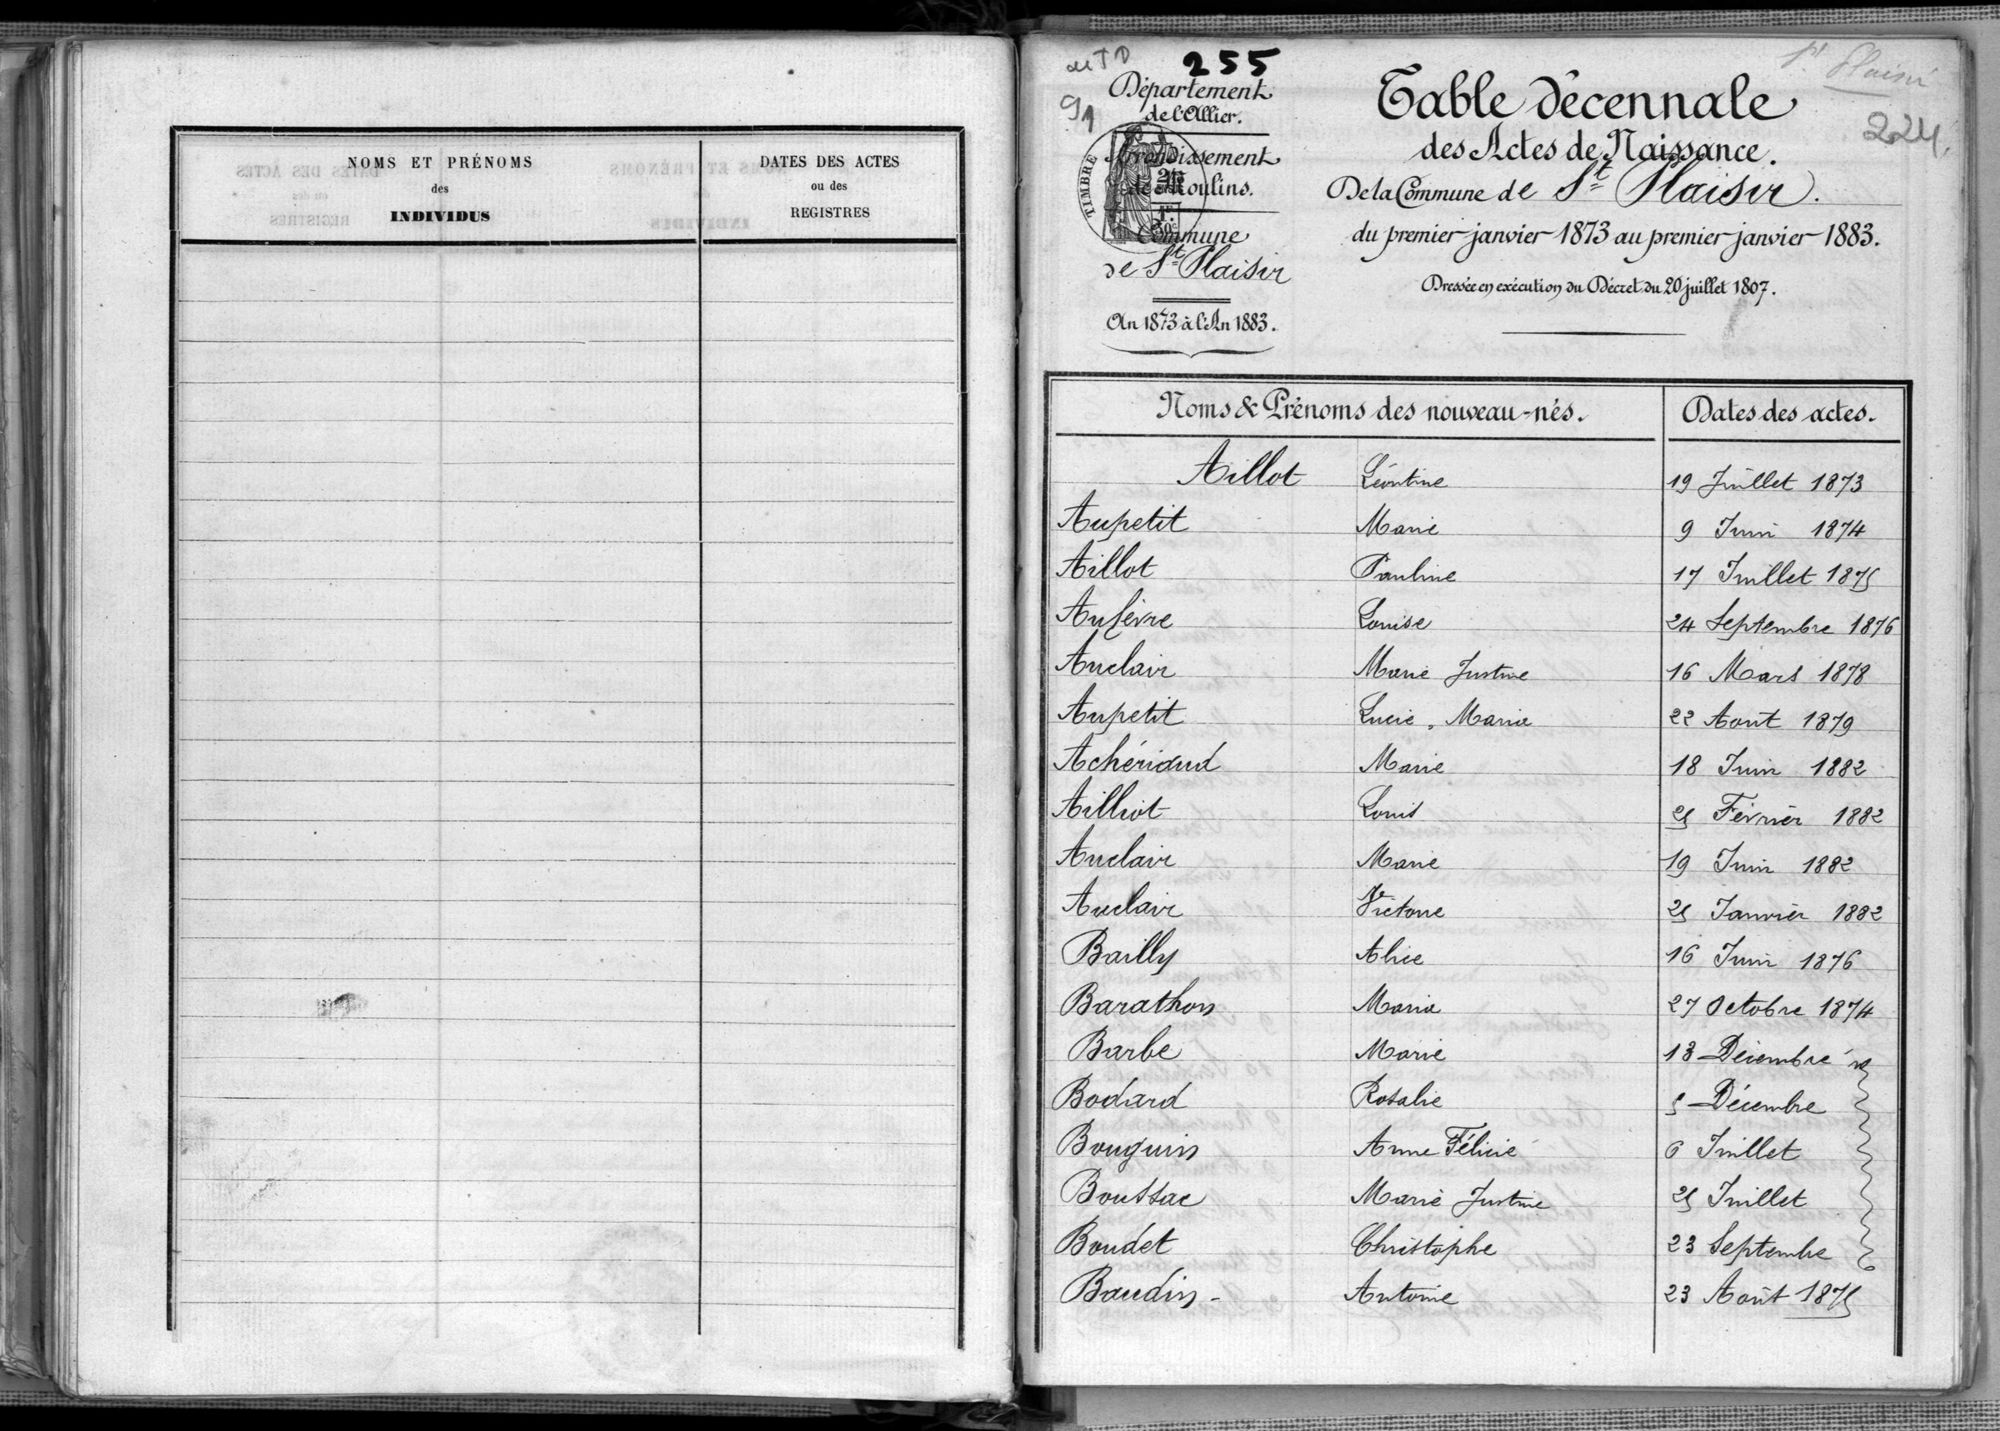 NOMS ET PRÉNOMS
des
INDIVIDUS
DATES DES ACTES
ou des
REGISTRES
255
91
Département
de l'Allier.
Arrondissement
de Moulins.
TIMBRE
Commune
de St Plaisir
An 1873 à l'An 1883.
St Plaisir
224
Table décennale
des Actes de Naissance.
De la Commune de St Plaisir.
du premier janvier 1873 au premier janvier 1883.
Dressée en exécution du Décret du 20 juillet 1807.
Noms & Prénoms des nouveau-nés. Dates des actes.
Aillot Léontine 19 Juillet 1873
Aupetit Marie 9 Juin 1874
Aillot Pauline 17 Juillet 1875
Aufèvre Louise 24 Septembre 1876
Auclair Marie Justine 16 Mars 1878
Aupetit Lucie, Maria 22 Août 1879
Achériaud Marie 18 Juin 1882
Ailliot Louis 25 Février 1882
Auclair Marie 19 Juin 1882
Auclair Victorie 25 Janvier 1882
Bailly Alice 16 Juin 1876
Barathon Maria 27 Octobre 1874
Barbe Marie 13 Décembre
Bodard Rosalie 5 Décembre
Bouguin Anne Félicie 6 Juillet
Boussac Marie Justine 25 Juillet
Boudet Christophe 23 Septembre
Baudin - Antoine 23 Août 1875